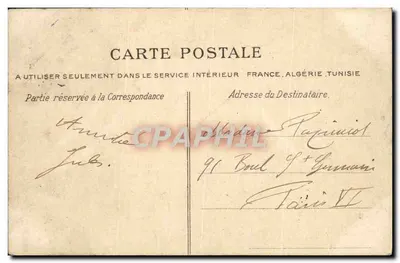 CARTE POSTALE
A UTILISER SEULEMENT DANS LE SERVICE INTÉRIEUR FRANCE, ALGÉRIE, TUNISIE
Partie réservée à la Correspondance
Adresse du Destinataire.
CPAPHIL
Madame
91 Boul St Germain
Paris VI